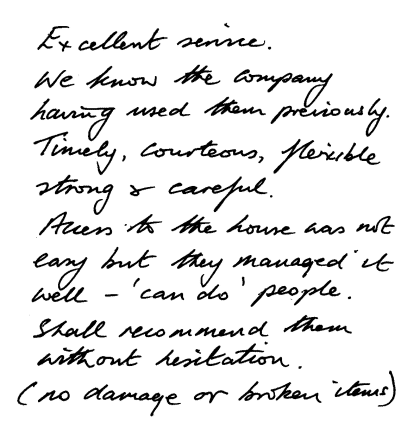 Excellent service.
We know the company
having used them previously.
Timely, courteous, flexible
strong & careful.
Access to the house was not
easy but they managed it
well - 'can do' people.
Shall recommend them
without hesitation.
(no damage or broken items)